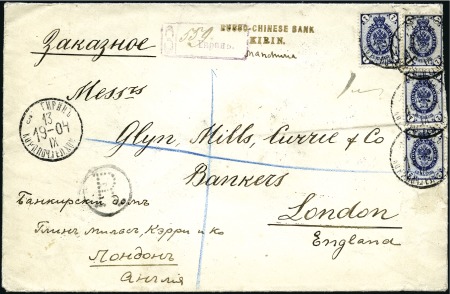 Заказное
RUSSO-CHINESE BANK
KIRIN.
Manchuria
Messrs
Glyn, Mills, Currie & Co
Bankers
London
England
ГИРИНЪ
13
19-04
IX
Банкирскій домъ
Глинъ милъсъ, Кэрри и Ко
Лондонъ
Англія